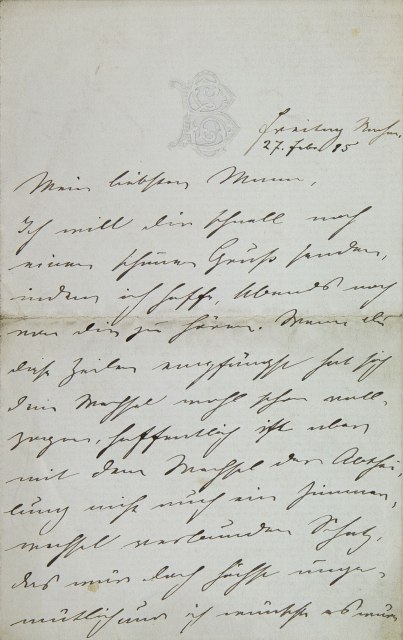 Freitag Nachm.
27. Febr. 85
Mein liebster Mann,
Ich will dir schnell noch
einen schönen Gruß senden,
indem ich hoffe, Abends noch
von dir zu hören. Wenn du
diese Zeilen empfängst hat sich
dein Wechsel wohl schon voll-
zogen, hoffentlich ist aber
mit dem Wechsel der Abthei-
lung nicht auch ein Zimmer-
wechsel verbunden Schatz,
das wär doch höchst unge-
mütlich und ich wünschte es